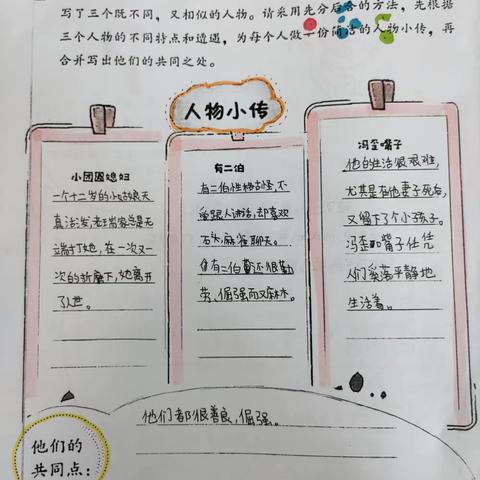 写了三个既不同，又相似的人物。请采用先分后合的方法，先根据
三个人物的不同特点和遭遇，为每个人做一份简洁的人物小传，再
合并写出他们的共同之处。
人物小传
小团圆媳妇
一个十二岁的小姑娘天
真活泼，老胡家总是无
端打她，在一次又一
次的折磨下，她离开
了人世。
有二伯
有二伯性格古怪，不
爱跟人讲话，却喜欢
石头，麻雀聊天。
有二伯还很勤
劳、倔强而又
冯歪嘴子
他的生活很艰难，
尤其是在他妻子死后，
又留下了个小孩子。
冯歪嘴子任凭
人们奚落平静地
生活着。
他们都很善良，倔强。
他们的
共同点：